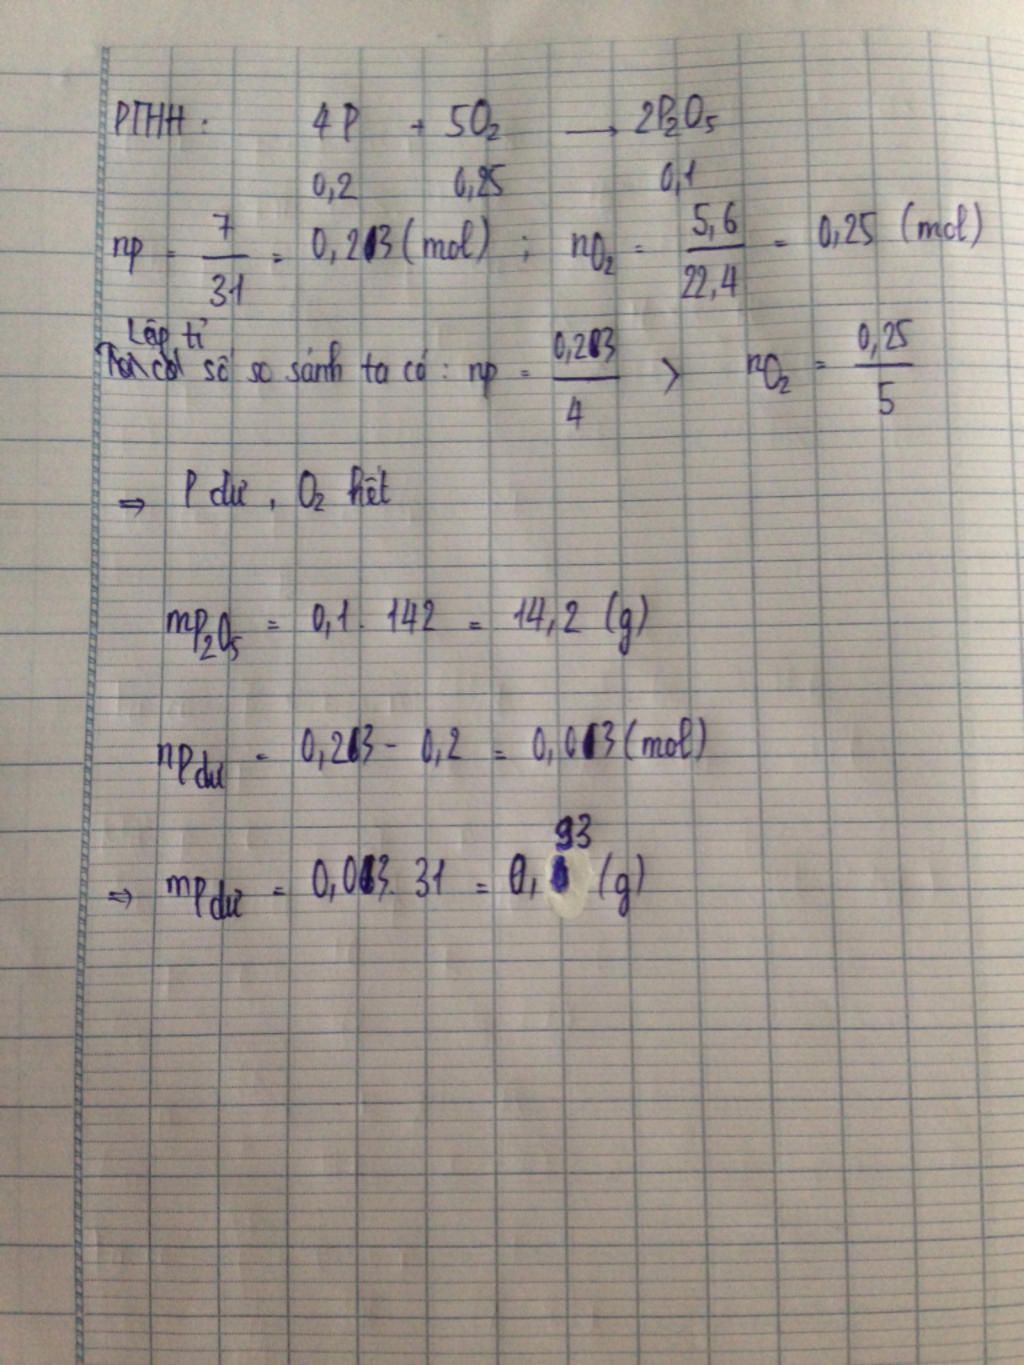 PTHH: 4P + 5O₂ → 2P₂O₅
0,2 0,25 0,1
nP = 7/31 = 0,23 (mol) ; nO₂ = 5,6/22,4 = 0,25 (mol)
Lập tỉ
số so sánh ta có: nP = 0,23/4 > nO₂ = 0,25/5
⇒ P dư, O₂ hết
mP₂O₅ = 0,1. 142 = 14,2 (g)
nP dư = 0,23 - 0,2 = 0,03 (mol)
⇒ mP dư = 0,03. 31 = 0,93 (g)